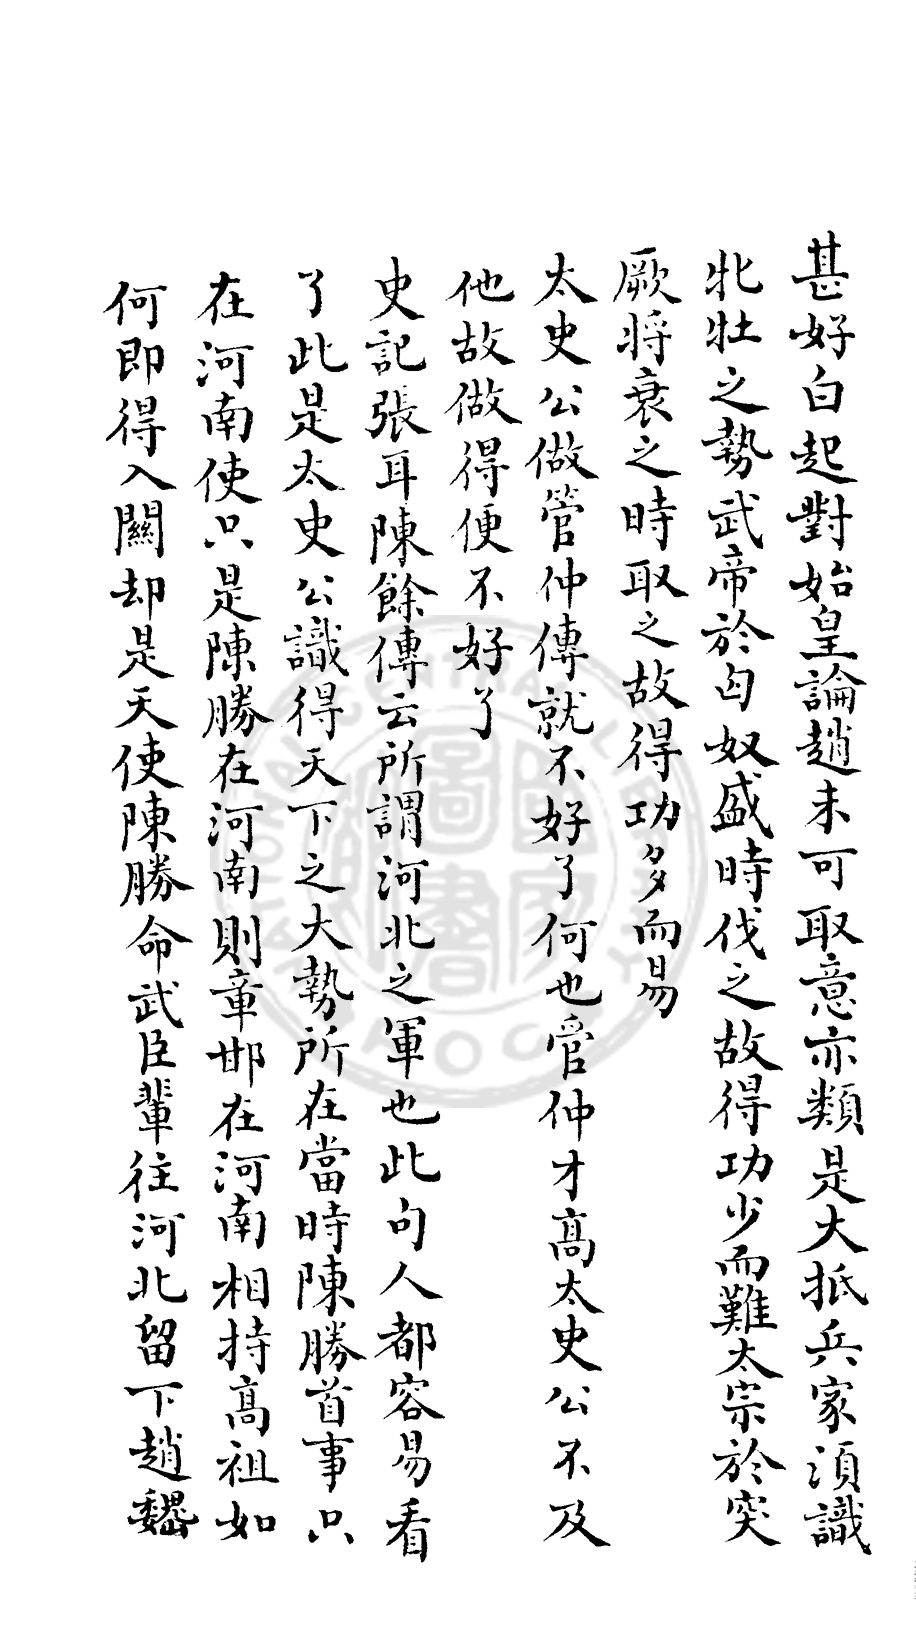 甚好白起對始皇論趙未可取意亦類是大抵兵家須識
牝牡之勢武帝於匈奴盛時伐之故得功少而難太宗於突
厥將衰之時取之故得功多而易
太史公做管仲傳就不好了何也管仲才高太史公不及
他故做得便不好了
史記張耳陳餘傳云所謂河北之軍也此句人都容易看
了此是太史公識得天下之大勢所在當時陳勝首事只
在河南使只是陳勝在河南則章邯在河南相持高祖如
何即得入關却是天使陳勝命武臣輩往河北留下趙魏